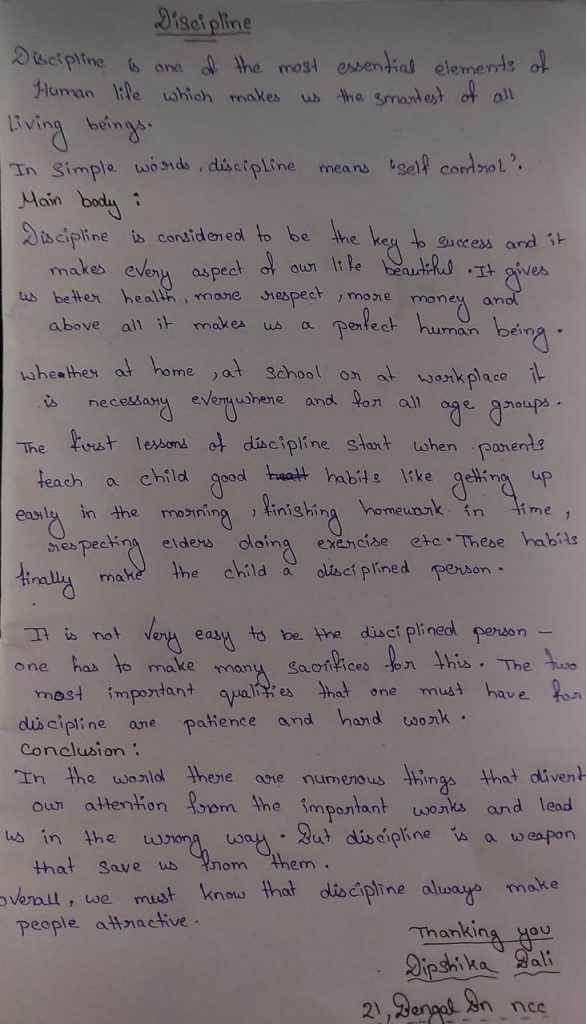 Discipline
Discipline is one of the most essential elements of
Human life which makes us the smartest of all
Living beings.
In Simple words, discipline means 'self control'.
Main body :
Discipline is considered to be the key to success and it
makes every aspect of our life beautiful. It gives
us better health, more respect, more money and
above all it makes us a perfect human being.
wheather at home, at School or at workplace it
is necessary everywhere and for all age groups.
The first lessons of discipline start when parents
teach a child good habits like getting up
early in the morning, finishing homework in time,
respecting elders doing exercise etc. These habits
finally make the child a disciplined person.
It is not very easy to be the disciplined person –
one has to make many sacrifices for this. The two
most important qualities that one must have for
discipline are patience and hard work.
Conclusion :
In the world there are numerous things that divert
our attention from the important works and lead
us in the wrong way. But discipline is a weapon
that save us from them.
overall, we must know that discipline always make
people attractive.
Thanking you
Dipshika Bali
21, Bengal Bn ncc